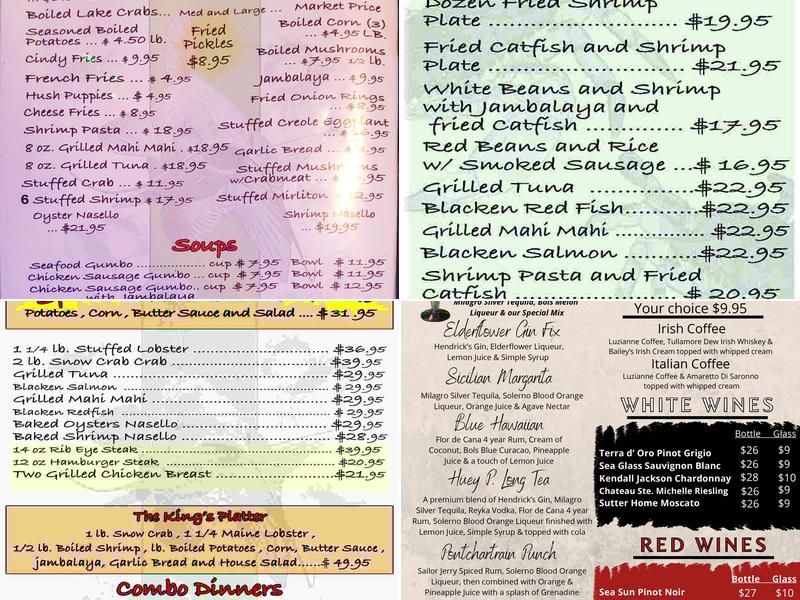 Boiled Lake Crabs... Med and Large ... Market Price
Seasoned Boiled
Potatoes ... $ 4.50 lb.
Cindy Fries ... $9.95
French Fries ... $ 4.95
Hush Puppies ... $ 4.95
Cheese Fries ... $ 8.95
Shrimp Pasta ... $ 18.95
8 oz. Grilled Mahi Mahi . $18.95
8 oz. Grilled Tuna . $18.95
Stuffed Crab ... $ 11.95
6 Stuffed Shrimp $ 17.95
Oyster Nasello
... $21.95
Fried
Pickles
$8.95
Boiled Corn (3)
... $4.95 LB.
Boiled Mushrooms
... $ 7.95 1/2 lb.
Jambalaya ... $9.95
Fried Onion Rings
... $8.95
Stuffed Creole Eggplant
Garlic Bread ...
Stuffed Mushrooms
w/Crabmeat ...
Stuffed Mirliton
Shrimp Nasello
... $19.95
Soups
Seafood Gumbo ................ cup $ 7.95 Bowl $ 11.95
Chicken Sausage Gumbo ... cup $ 7.95 Bowl $ 11.95
Chicken Sausage Gumbo.. cup $ 7.95 Bowl $ 12.95
with Jambalaya
Dozen Fried Shrimp
Plate ........................... $19.95
Fried Catfish and Shrimp
Plate ......................... $21.95
White Beans and Shrimp
with Jambalaya and
fried Catfish ............. $17.95
Red Beans and Rice
w/ Smoked Sausage ...$ 16.95
Grilled Tuna .............$22.95
Blacken Red Fish..........$22.95
Grilled Mahi Mahi .....$22.95
Blacken Salmon .........$22.95
Shrimp Pasta and Fried
Catfish ..................... $ 20.95
Potatoes , Corn, Butter Sauce and Salad .... $ 31.95
1 1/4 lb. Stuffed Lobster ..........................$36.95
2 lb. Snow Crab Crab ..............................$39.95
Grilled Tuna ..........................................$29.95
Blacken Salmon ......................................$29.95
Grilled Mahi Mahi ..................................$29.95
Blacken Redfish ......................................$29.95
Baked Oysters Nasello .............................$29.95
Baked Shrimp Nasello .............................$28.95
14 oz Rib Eye Steak .................................$39.95
12 oz Hamburger Steak ............................$20.95
Two Grilled Chicken Breast .....................$21.95
The King's Platter
1 lb. Snow Crab , 1 1/4 Maine Lobster ,
1/2 lb. Boiled Shrimp , lb. Boiled Potatoes , Corn, Butter Sauce ,
jambalaya, Garlic Bread and House Salad......$ 49.95
Combo Dinners
Milagro Silver Tequila, Bols Melon
Liqueur & our Special Mix
Elderflower Gin Fix
Hendrick's Gin, Elderflower Liqueur,
Lemon Juice & Simple Syrup
Sicilian Margarita
Milagro Silver Tequila, Solerno Blood Orange
Liqueur, Orange Juice & Agave Nectar
Blue Hawaiian
Flor de Cana 4 year Rum, Cream of
Coconut, Bols Blue Curacao, Pineapple
Juice & a touch of Lemon Juice
Huey P. Long Tea
A premium blend of Hendrick's Gin, Milagro
Silver Tequila, Reyka Vodka, Flor de Cana 4 year
Rum, Solerno Blood Orange Liqueur finished with
Lemon Juice, Simple Syrup & topped with cola
Pontchartrain Punch
Sailor Jerry Spiced Rum, Solerno Blood Orange
Liqueur, then combined with Orange &
Pineapple Juice with a splash of Grenadine
Your choice $9.95
Irish Coffee
Luzianne Coffee, Tullamore Dew Irish Whiskey &
Bailey's Irish Cream topped with whipped cream
Italian Coffee
Luzianne Coffee & Amaretto Di Saronno
topped with whipped cream
WHITE WINES
Bottle Glass
Terra d' Oro Pinot Grigio $26 $9
Sea Glass Sauvignon Blanc $26 $9
Kendall Jackson Chardonnay $28 $10
Chateau Ste. Michelle Riesling $26 $9
Sutter Home Moscato $26 $9
RED WINES
Bottle Glass
Sea Sun Pinot Noir $27 $10